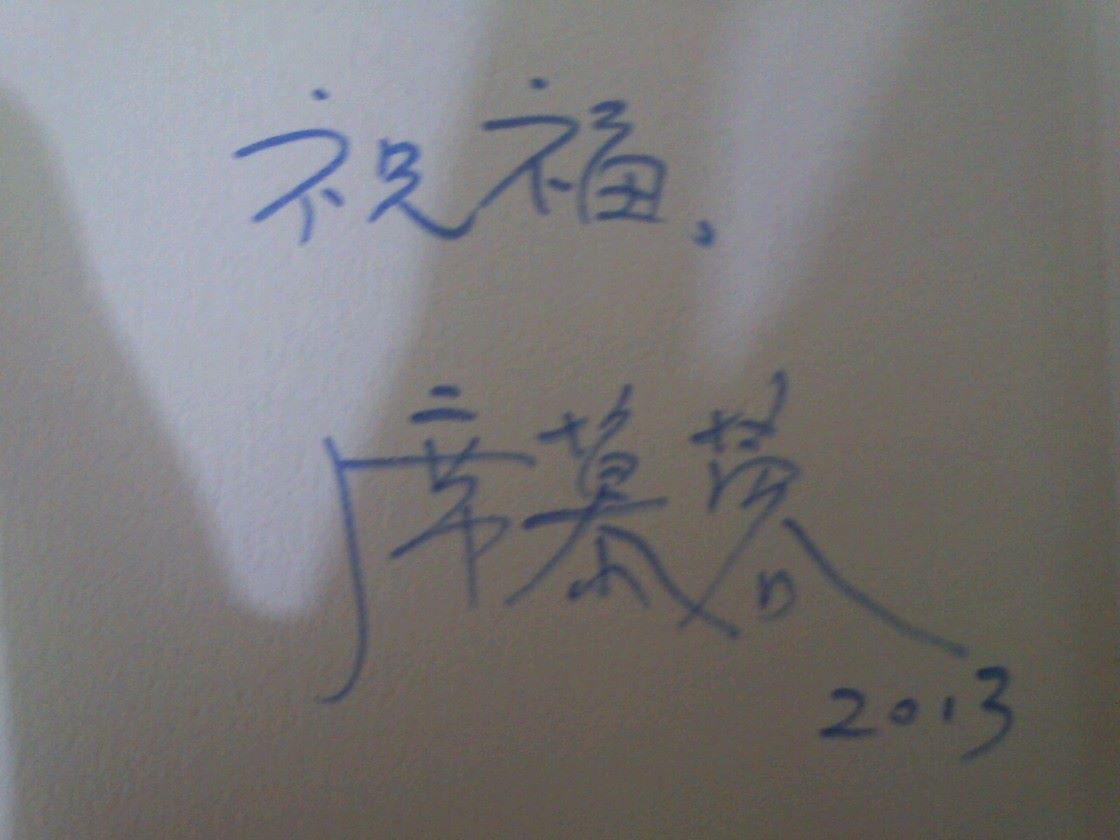 祝福、
席慕蓉
2013